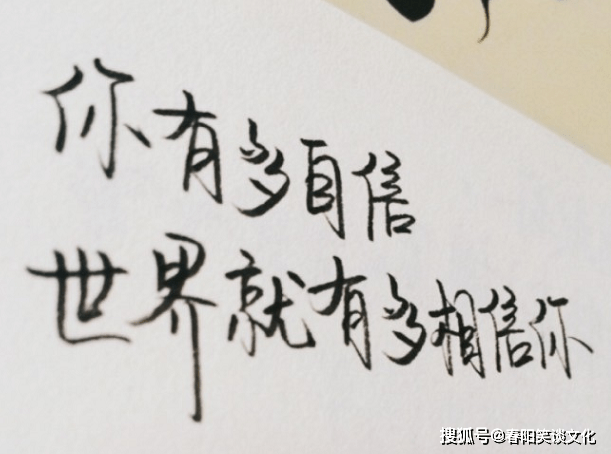 你有多自信
世界就有多相信你
搜狐号@春阳笑谈文化